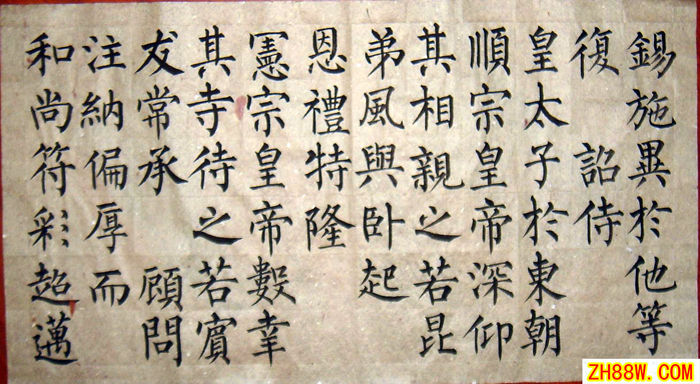 錫施異於他等
復 詔侍
皇太子於東朝
順宗皇帝深仰
其相親之若昆
弟風與卧起
恩禮特隆
憲宗皇帝數幸
其寺待之若賓
友常承 顧問
注納偏厚而
和尚符彩超邁
ZH88W.COM